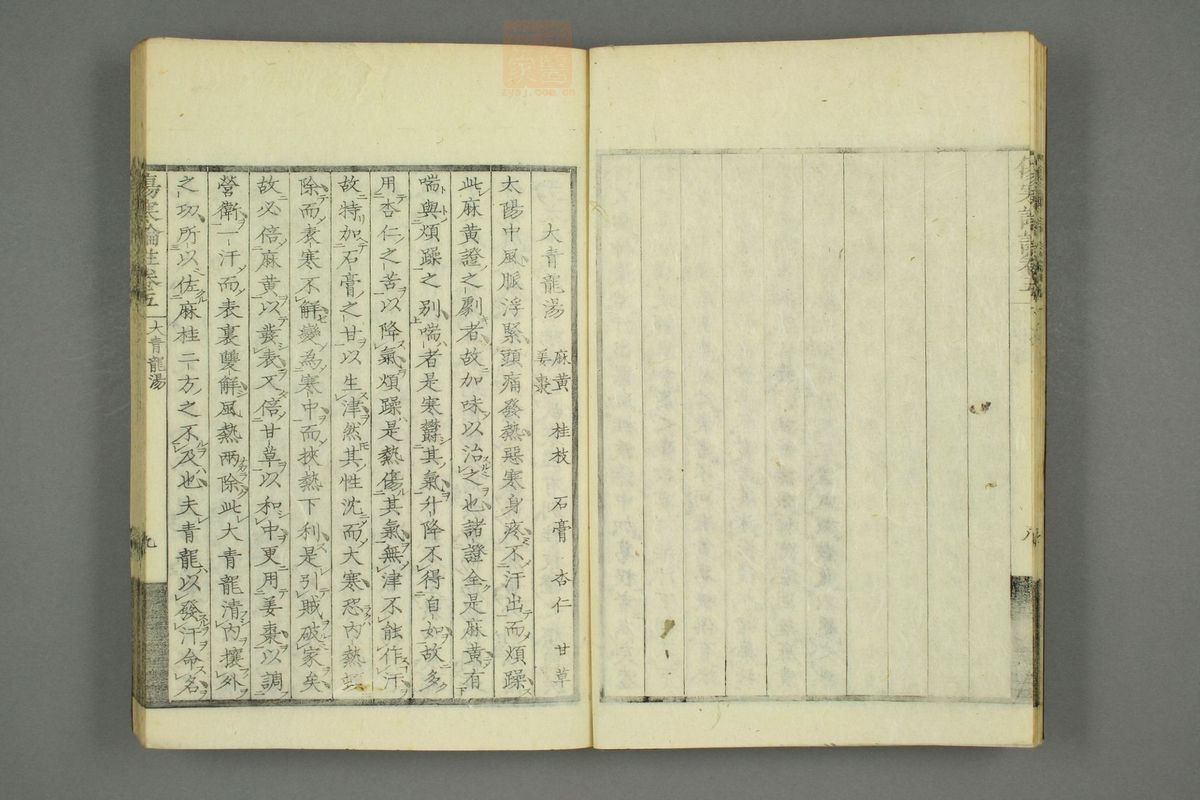 大青龍湯 麻黃 桂枝 石膏 杏仁 甘草 姜棗
太陽中風脈浮緊頭痛發熱惡寒身疼不汗出而煩躁
此麻黃證之劇者故加味以治之也諸證全是麻黃有
喘與煩躁之別喘者是寒鬱其氣升降不得自如故多
用杏仁之苦以降氣煩躁是熱傷其氣無津不能作汗
故特加石膏之甘以生津然其性沈而大寒恐內熱
除而表寒不解變為寒中而挾熱下利是引賊破家矣
故必倍麻黃以發表又倍甘草以和中更用姜棗以調
營衛一汗而表裏雙解風熱兩除此大青龍清內攘外
之功所以佐麻桂二方之不及也夫青龍以發汗命名
傷寒論註卷五 大青龍湯 九
八
zysj.com.cn